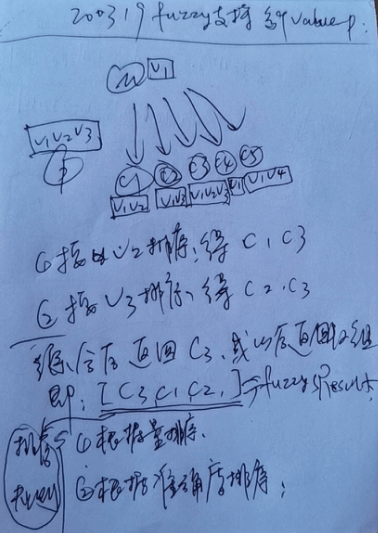 200319 fuzzy支持多个value中.
m V1
V1V2V3
P
C1 C2 C3 C4 C5
V1V2 V1V3 V1V2V3 V1 V1V4
①按照V2排序,得 C1 C3
②按照V3排序、得 C2、C3
综合后返回C3,或以后返回数组
即: [C3,C1,C2,]=fuzzy的Result,
①根据量排序.
②根据准确度排序;